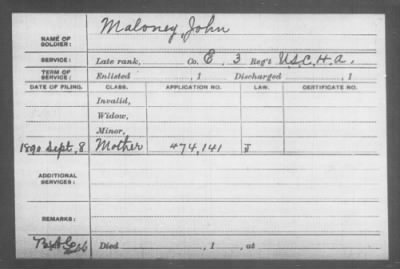 NAME OF SOLDIER: Maloney, John
SERVICE: Late rank, Co. E, 3 Reg't U.S.C.H.A.
TERM OF SERVICE: Enlisted , 1 Discharged , 1
DATE OF FILING. CLASS. APPLICATION NO. LAW. CERTIFICATE NO.
Invalid,
Widow,
Minor,
1890 Sept. 8 Mother 474,141
ADDITIONAL SERVICES:
REMARKS:
Died , 1 , at